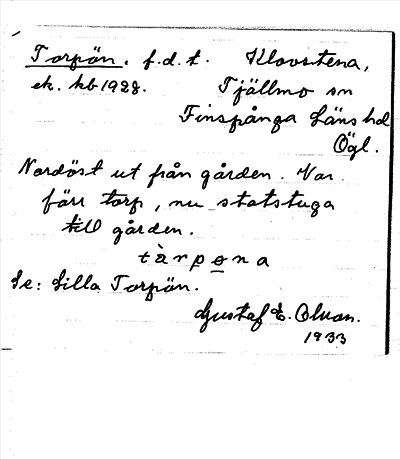 Torpön. f.d.t. Klovstena,
ek. kb 1928. Tjällmo sn
Finspånga Läns hd
Ögl.
Nordöst ut från gården. Var
förr torp, nu statstuga
till gården.
tàrpɵna
Se: Lilla Torpön.
Gustaf E. Olson.
1933